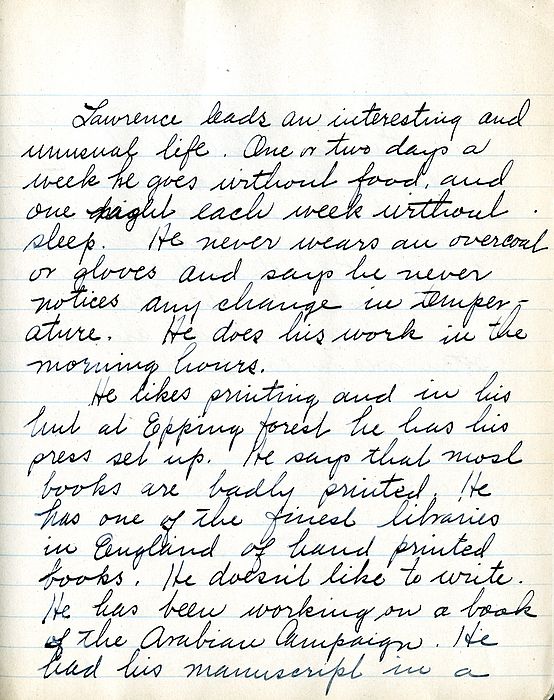 Lawrence leads an interesting and
unusual life. One or two days a
week he goes without food, and
one night each week without
sleep. He never wears an overcoat
or gloves and says he never
notices any change in temper-
ature. He does his work in the
morning hours.
He likes printing and in his
hut at Epping forest he has his
press set up. He says that most
books are badly printed. He
has one of the finest libraries
in England of hand printed
books. He doesn't like to write.
He has been working on a book
of the Arabian Campaign. He
had his manuscript in a